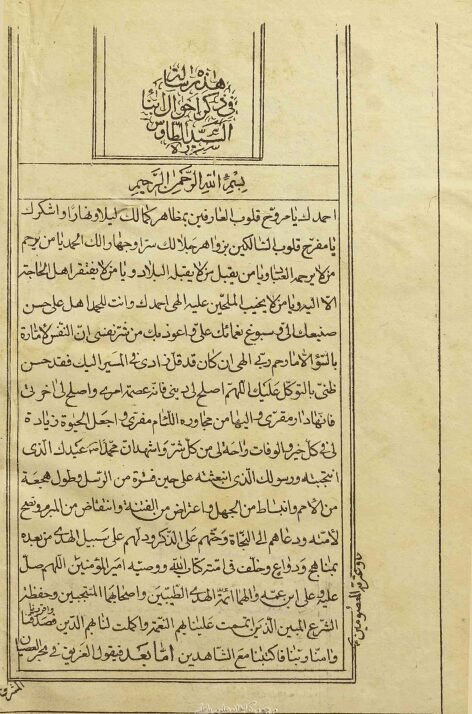 هذه رسالة
في ذكر احوال
السيد الطاوس
بسم الله الرحمن الرحيم
احمدك يا مروح قلوب العارفين بمظاهر كمالك ليلا ونهارا واشكرك
يا مفرح قلوب السالكين بزواهر جلالك سرا وجهارا لك الحمد يا من يرحم
من لا يرحمه العباد ويا من يقبل من لا يقبله البلاد ويا من لا يفتقر اهل الحاجة
الا اليه ويا من لا يخيب الملحين عليه الهي احمدك وانت للحمد اهل على حسن
صنيعك الي وسبوغ نعمائك علي واعوذ بك من شر نفسي ان النفس لامارة
بالسوء الا ما رحم ربي الهي ان كان قد قل زادي في المسير اليك فقد حسن
ظني بالتوكل عليك اللهم اصلح لي ديني فانه عصمة امري واصلح لي اخرتي
فانها دار مقري واليها من مجاورة اللئام مفري واجعل الحيوة زيادة
لي في كل خير والوفات راحة لي من كل شر واشهد ان محمدا عبدك الذي
انتجبته ورسولك الذي ابتعثته على حين فترة من الرسل وطول هجعة
من الامم وانبساط من الجهل واعتراض من الفتنة وانتقاض من المبرم ونصح
لامته ودعاهم الى النجاة وحثهم على الذكر ودلهم على سبيل الهدى من بعده
بمناهج ودواع وخلف في امته كتاب الله ووصيه امير المؤمنين اللهم صل
عليه وعلى ابن عمه والهما ائمة الهدى الطيبين واصحابهما المنتجبين وحفظة
الشرع المبين الذين اتممت علينا بهم النعمة واكملت لنا بهم الدين فصدقنا
وامنا ربنا فاكتبنا مع الشاهدين اما بعد فيقول الغريق في بحر العصيان